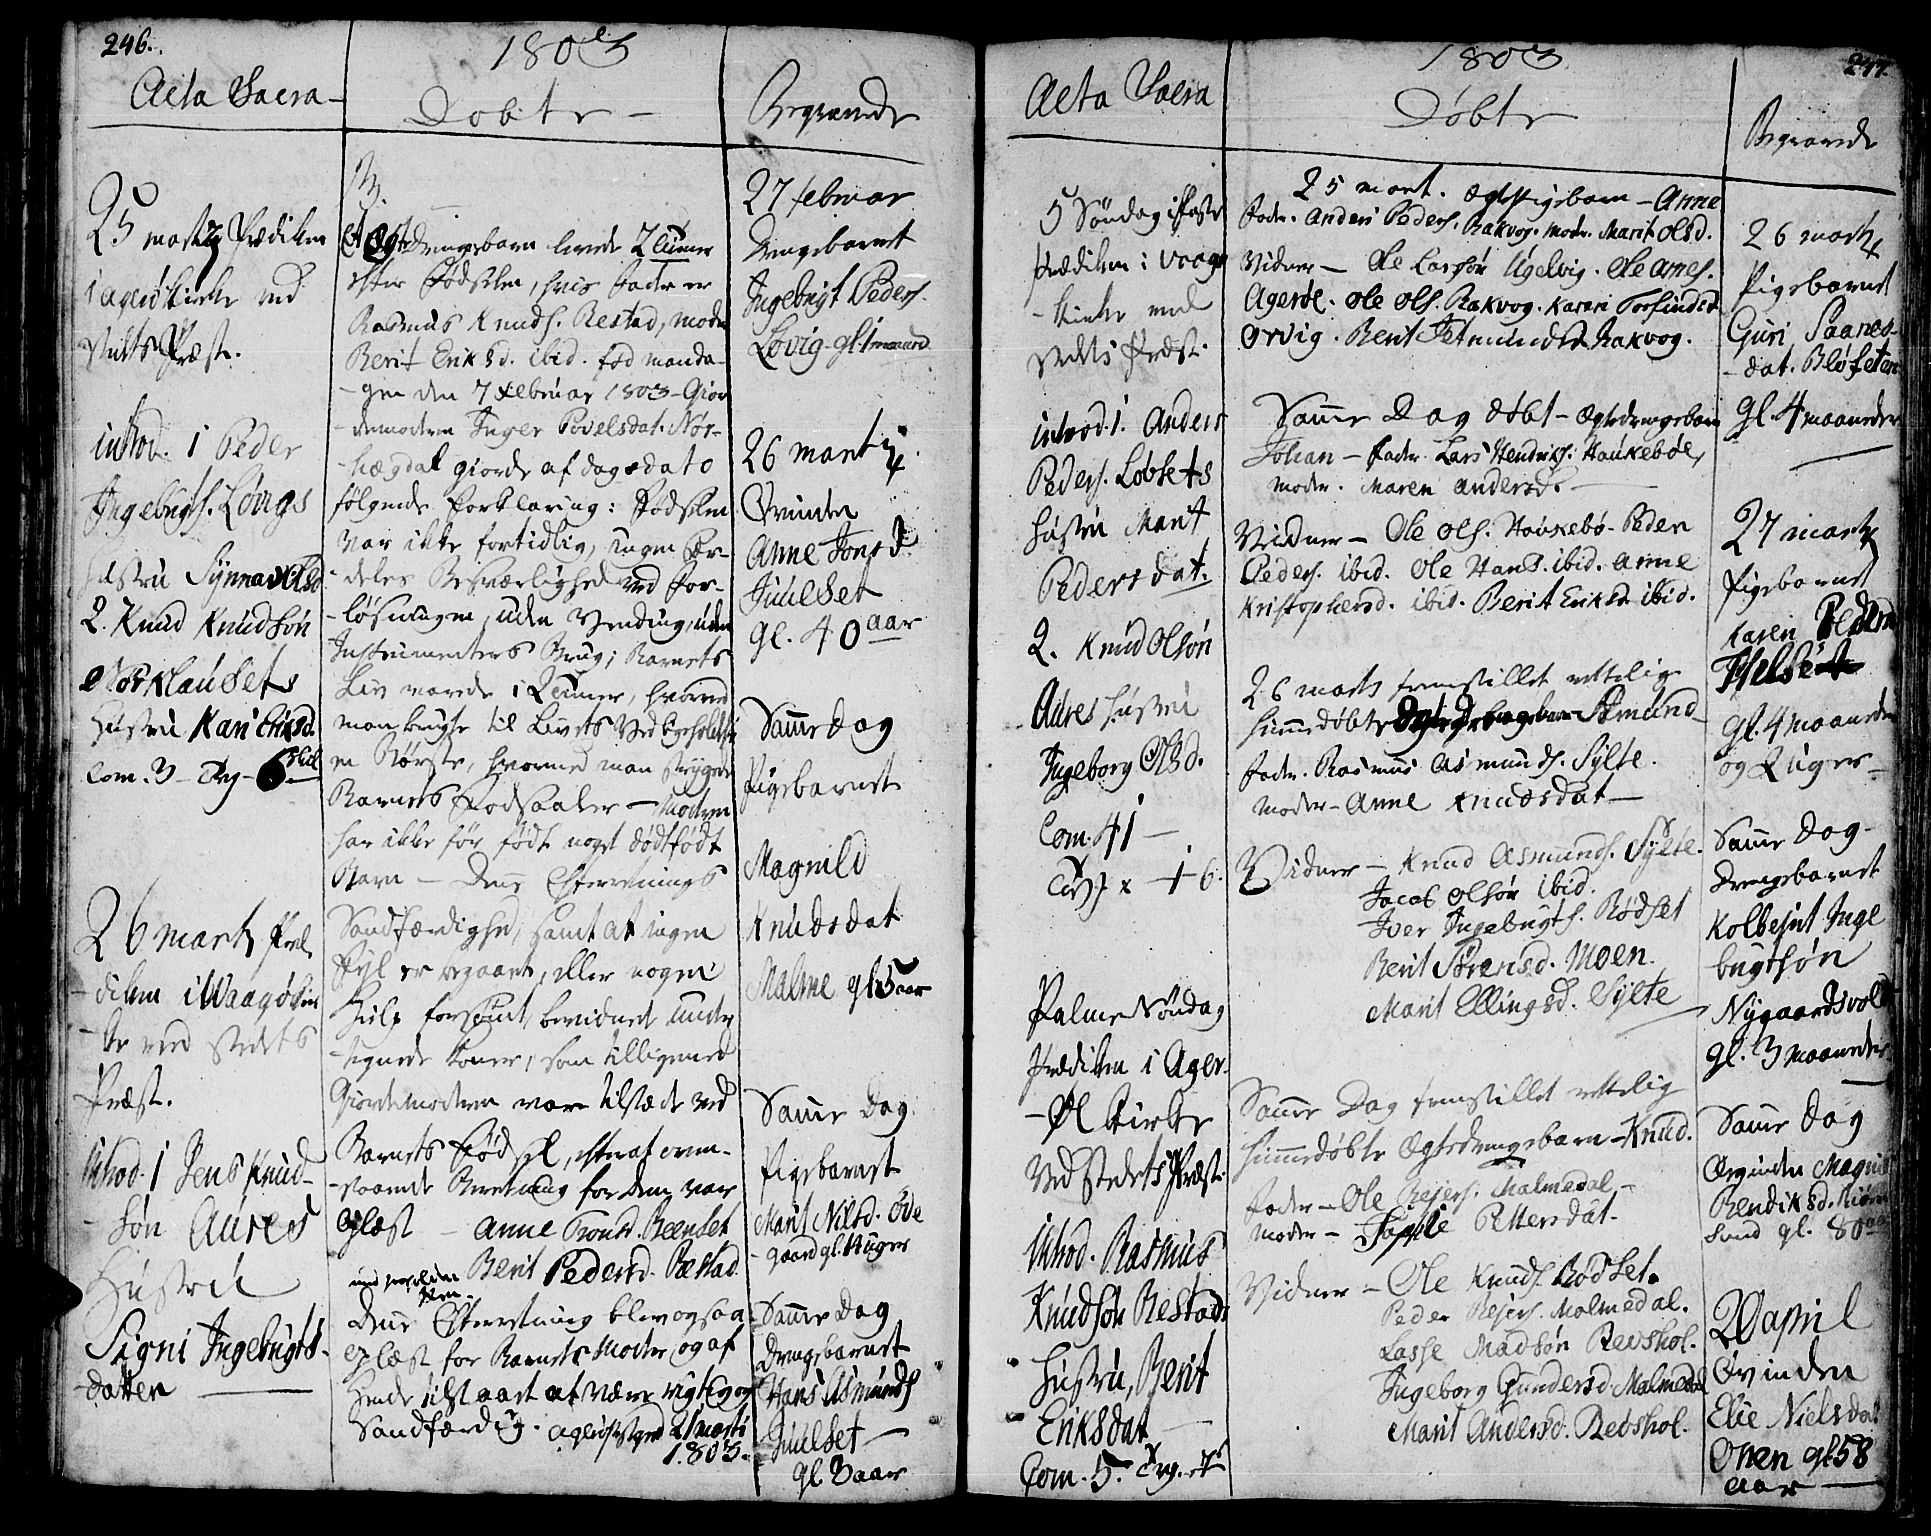 246.
1803
Acta Sacra
Døbte
Begravede
25 martij Prædiken
i agerøkirke ved
stedets Præst.
introd. 1 Peder
Ingebrigts. Løvigs
hustru Synnev
2. Knud Knudsøn
Norklausets
Hustru Kari Eriksd.
Com. 3 - Trg - 6 skil
26 martij Præ
-diken i Waagøkir
-ke ved stedets
Præst.
introd. 1 Jens Knud-
-søn Aures
Hustru
Signi Ingebrigts-
datter
N.
Et Ægte Drengebarn levede 2 Timer
efter Fødselen, hvis Fader er
Rasmus Knuds. Restad, moder
Berit Eriksd. ibid. fød manda-
-gen den 7 Februar 1803 - Gior
-demoderen Inger Povelsdat. Nør-
-hægdal giorde af dags dato
følgende Forklaring: Fødselen
var ikke fortidlig, ingen sær-
-deles Besværlighed ved For-
-løsningen, uden Vending, uden
Instrumenters Brug; Barnets
Liv varede i 2 Timer, hvorved
man brugte til Livets Vedligeholdelse
en Børste, hvormed man strygede
Barnets Fodsaaler - Moderen
har ikke før født noget dødfødt
Barn - Denne Efterretnings
Sandfærdighed, samt at ingen
Feyl er begaaet, eller nogen
Hielp forsømt, bevidnet under
-tegnede Koner, som tilligemed
Giordemoderen vare tilstæde ved
Barnets Fødsel, efterat oven-
-staaende Beretning for dem var
oplæst - Anne Tronds. Reenset
Berit Pedersd. Restad
med paaholden Pen.
Denne Efterretning blev ogsaa
oplæst for Barnets Moder, og af
Hende tilstaaet at være rigtig og
Sandfærdig. agerøe 21 marts
1803.
27 februar
Drengebarnet
Ingebrigt Peders.
Løvig gl. 1 maaned
26 martij
Qvinden
Anne Jonsd.
Juulset
gl. 40 aar
Samme Dag
Pigebarnet
Magnild
Knudsdat
Malme gl. 5 aar
Samme Dag
Pigebarnet
Marit Nilsd. Øde
-gaard gl. 4 Uger
Samme Dag
Drengebarnet
Hans Asmunds
Juulset
gl. 3 aar
247.
1803
Acta Sacra
Døbte
Begravede
5 Søndag i Faste
Prædiken i Vaagø
-kirke ved
stedets Præst.
introd. 1. Anders
Peders. Løvsets
hustru Marit
Pedersdat.
2. Knud Olsøn
Aures hustru
Ingeborg Olsd.
Com. 41 -
Palme Søndag
Prædiken i Ager-
-Øe Kirke
Ved Stedets Præst.
Introd. Rasmus
Knudsøn Restads
hustru, Berit
Eriksdat
Com. 5. Trg.
25 mart. ægte Pigebarn - Anne
Fader. Anders Peders. Rakvog. Moder. Marit Olsd.
Vidner - Ole Larssøn Ugelvig. Ole Anes.
Agerøe. Ole Ols. Rakvog. Karen Torfindsd.
Orvig. Berit Aslmundsd. Rakvog.
Samme Dag døbt - Ægtedrengebarn
Johan - Fader. Lars Hendrichs. Haukebøe,
moder. Maren Andersd.
Vidner - Ole Ols. Haukebø - Peder
Peders. ibid. Ole Hans. ibid. Anne
Kristophersd. ibid. Berit Eriksd. ibid.
26 marts fremstillet rettelig
hiemmedøbte Ægte Drengebarn Asmund
Fader. Rasmus Asmunds. Sylte.
Moder - Anne Knudsdat -
Vidner - Knud Asmunds. Sylte.
Jacob Olsøn ibid.
Iver Ingebrigts. Rødset
Berit Sørensd. Moen.
Marit Ellingsd. Sylte
Samme Dag fremstillet rettelig
hiemmedøbte Ægtedrengebarn - Knud.
Fader - Ole Rejers. Malmedal -
Moder - Sophie Pettersdat -
Vidner - Ole Knuds. Rødset.
Peder Rejers. Malmedal.
Lasse Madsøn Revshol.
Ingeborg Gundersd. Malmedal
Marit Andersd. Revshol.
26 martij
Pigebarnet
Guri Paanes-
-dat. Bløseten
gl. 4 maaneder
27 martij
Pigebarnet
Karen Pedersd
gl. 4 maaneder
og 2 Uger -
Samme Dag -
Drengebarnet
Kolbeint Inge
brigtsøn
Nygaardsvold
gl. 3 maaneder
Samme Dag
Qvinden Magnild
Bendiksd. Biørn
Sund gl. 80 aar
20 april
Qvinden
Elie Nielsdat
Onen gl. 58
aar